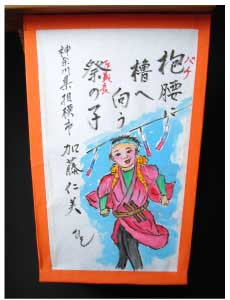 バチ
枹腰に
櫓へ
向う
祭の子
神奈川県相模市
加藤仁美